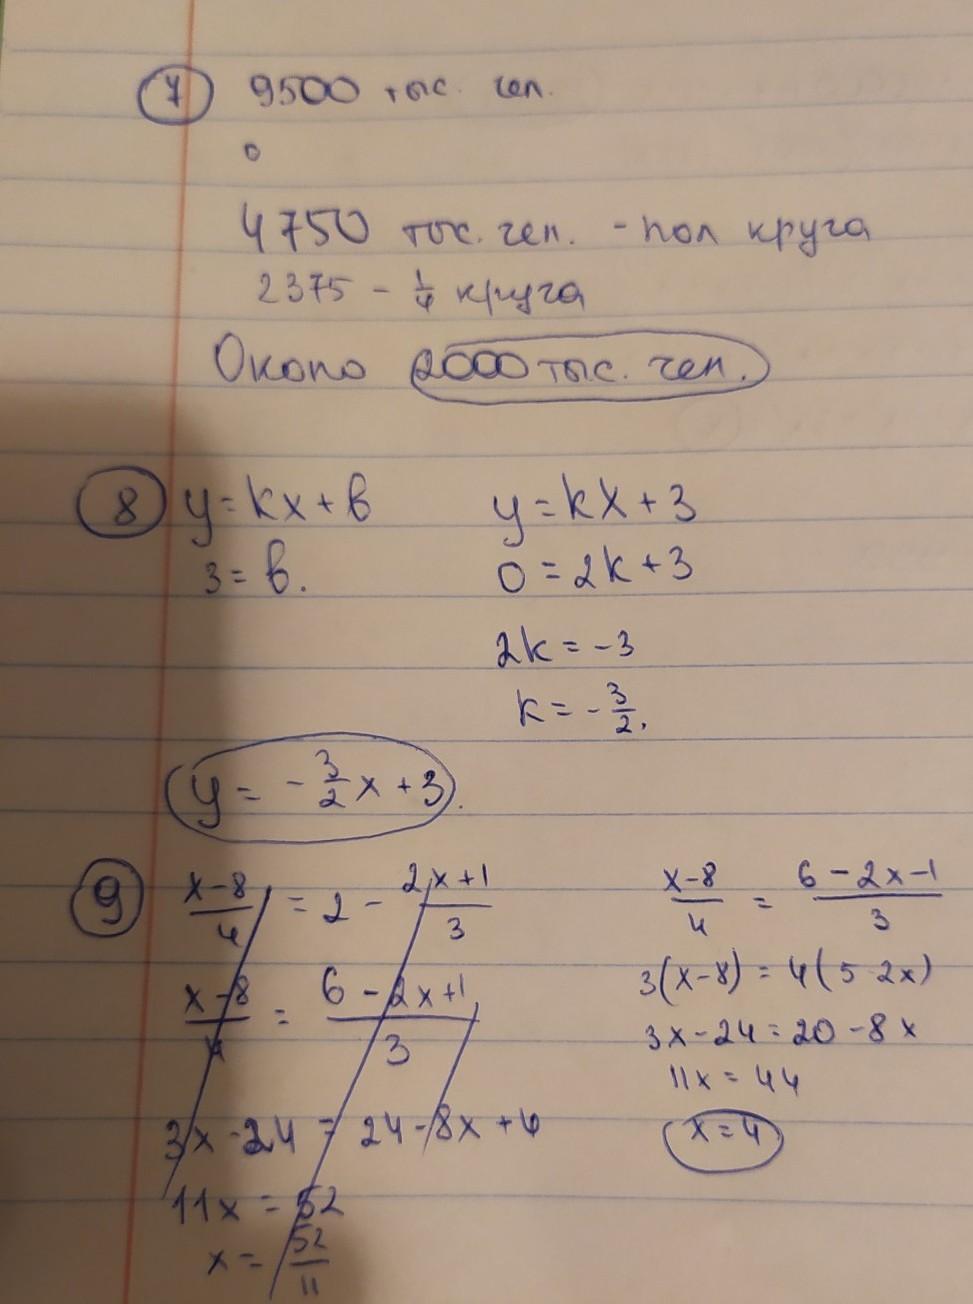 7 9500 тыс. чел.
4750 тыс. чел. - пол круга
2375 - 1/4 круга
Около 2000 тыс. чел.
8 y = kx + b
3 = b.
y = kx + 3
0 = 2k + 3
2k = -3
k = -3/2.
y = -3/2 x + 3.
9 x-8/4 = 2 - 2x+1/3
x-8/4 = 6-2x+1/3
3x - 24 = 24 - 8x + 4
11x = 52
x = 52/11
x-8/4 = 6-2x-1/3
3(x-8) = 4(5 2x)
3x - 24 = 20 - 8x
11x = 44
x = 4